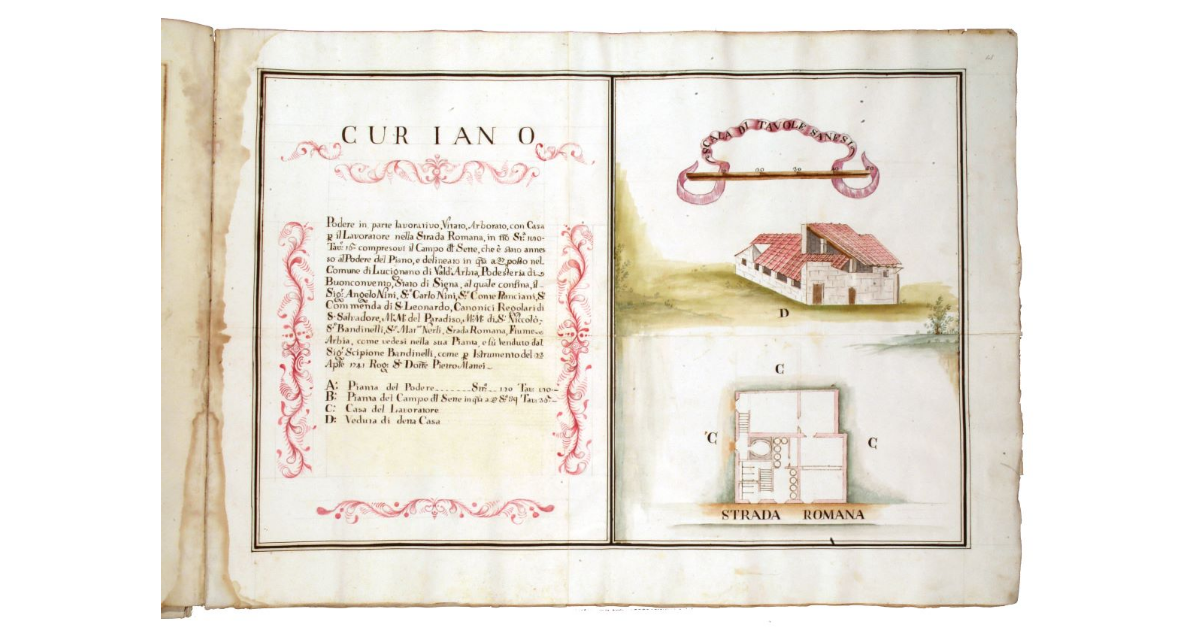 CURIANO
Podere in parte lavorativo, Vitato, Arborato, con Casa
p il Lavoratore nella Strada Romana, in
compresovi il Campo Sette, che è stato annes
so al Podere del Piano, e delineato in posto nel
Comune di Lucignano di Vald'Arbia, Podesteria di
Buonconvento, Stato di Siena, al quale confina, il
Sigr Angelo Nini, Sr Carlo Nini, Sr Conte Ponciani, Sr
Commenda di S. Leonardo, Canonici Regolari di
S. Salvadore, M. M. del Paradiso, M. M. di S. Niccolò,
Sr Bandinelli, Sr Nerli, Strada Romana, Fiume
Arbia, come vedesi nella sua Pianta, e fù venduto dal
Sigr Scipione Bandinelli, come p Istrumento del 22
Aple 1741 Rog: Sr Pietro
A: Pianta del Podere
B: Pianta del Campo Sette
C: Casa del Lavoratore
D: Veduta di detta Casa
SCALA DI TAVOLE SANESI
D
C
C
C
STRADA ROMANA